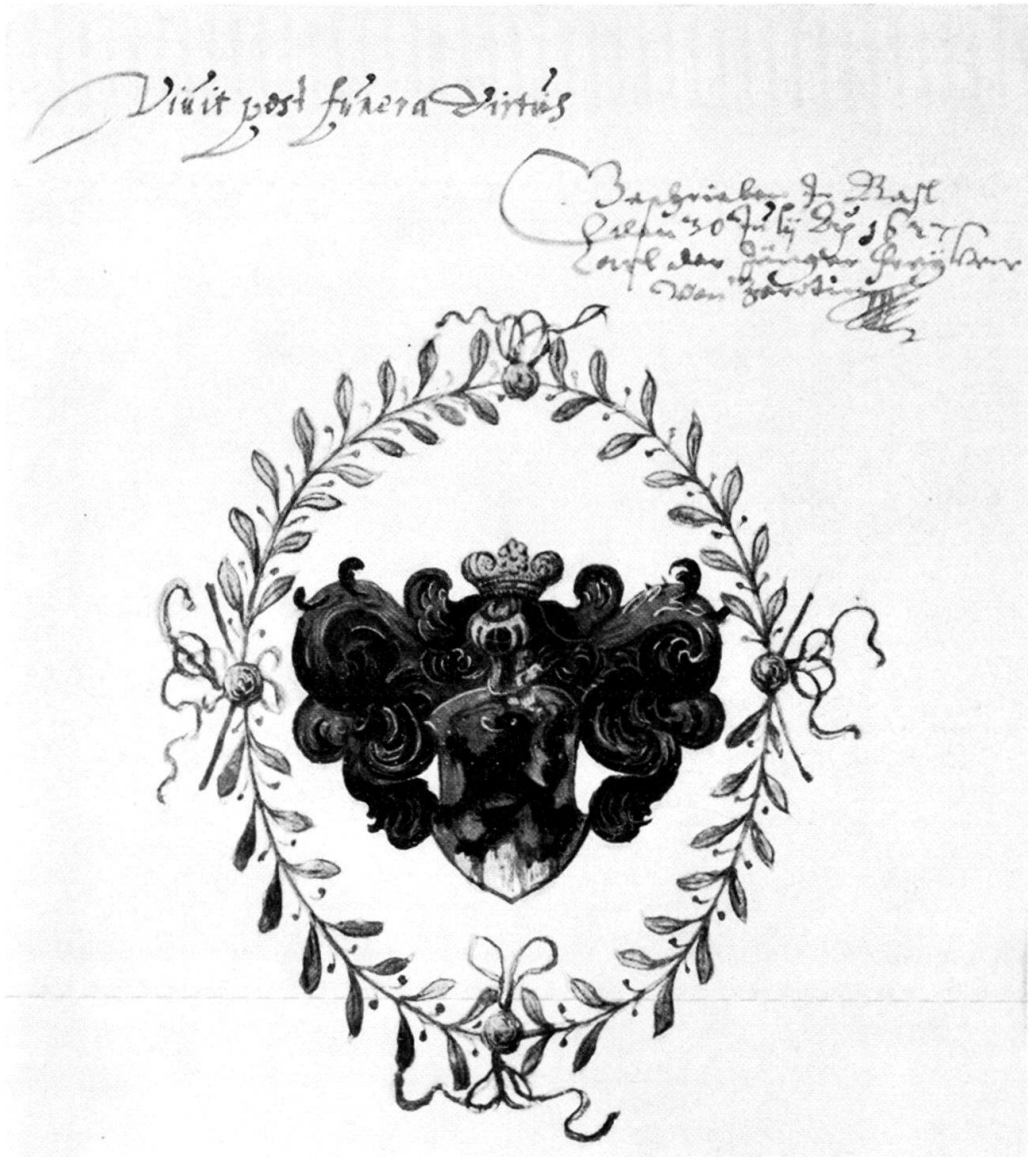 Viuit post funera Virtus
Geschrieben In Basl
den 30 July Aº 1627
Carl der Jünger Freyherr
von Zerotin